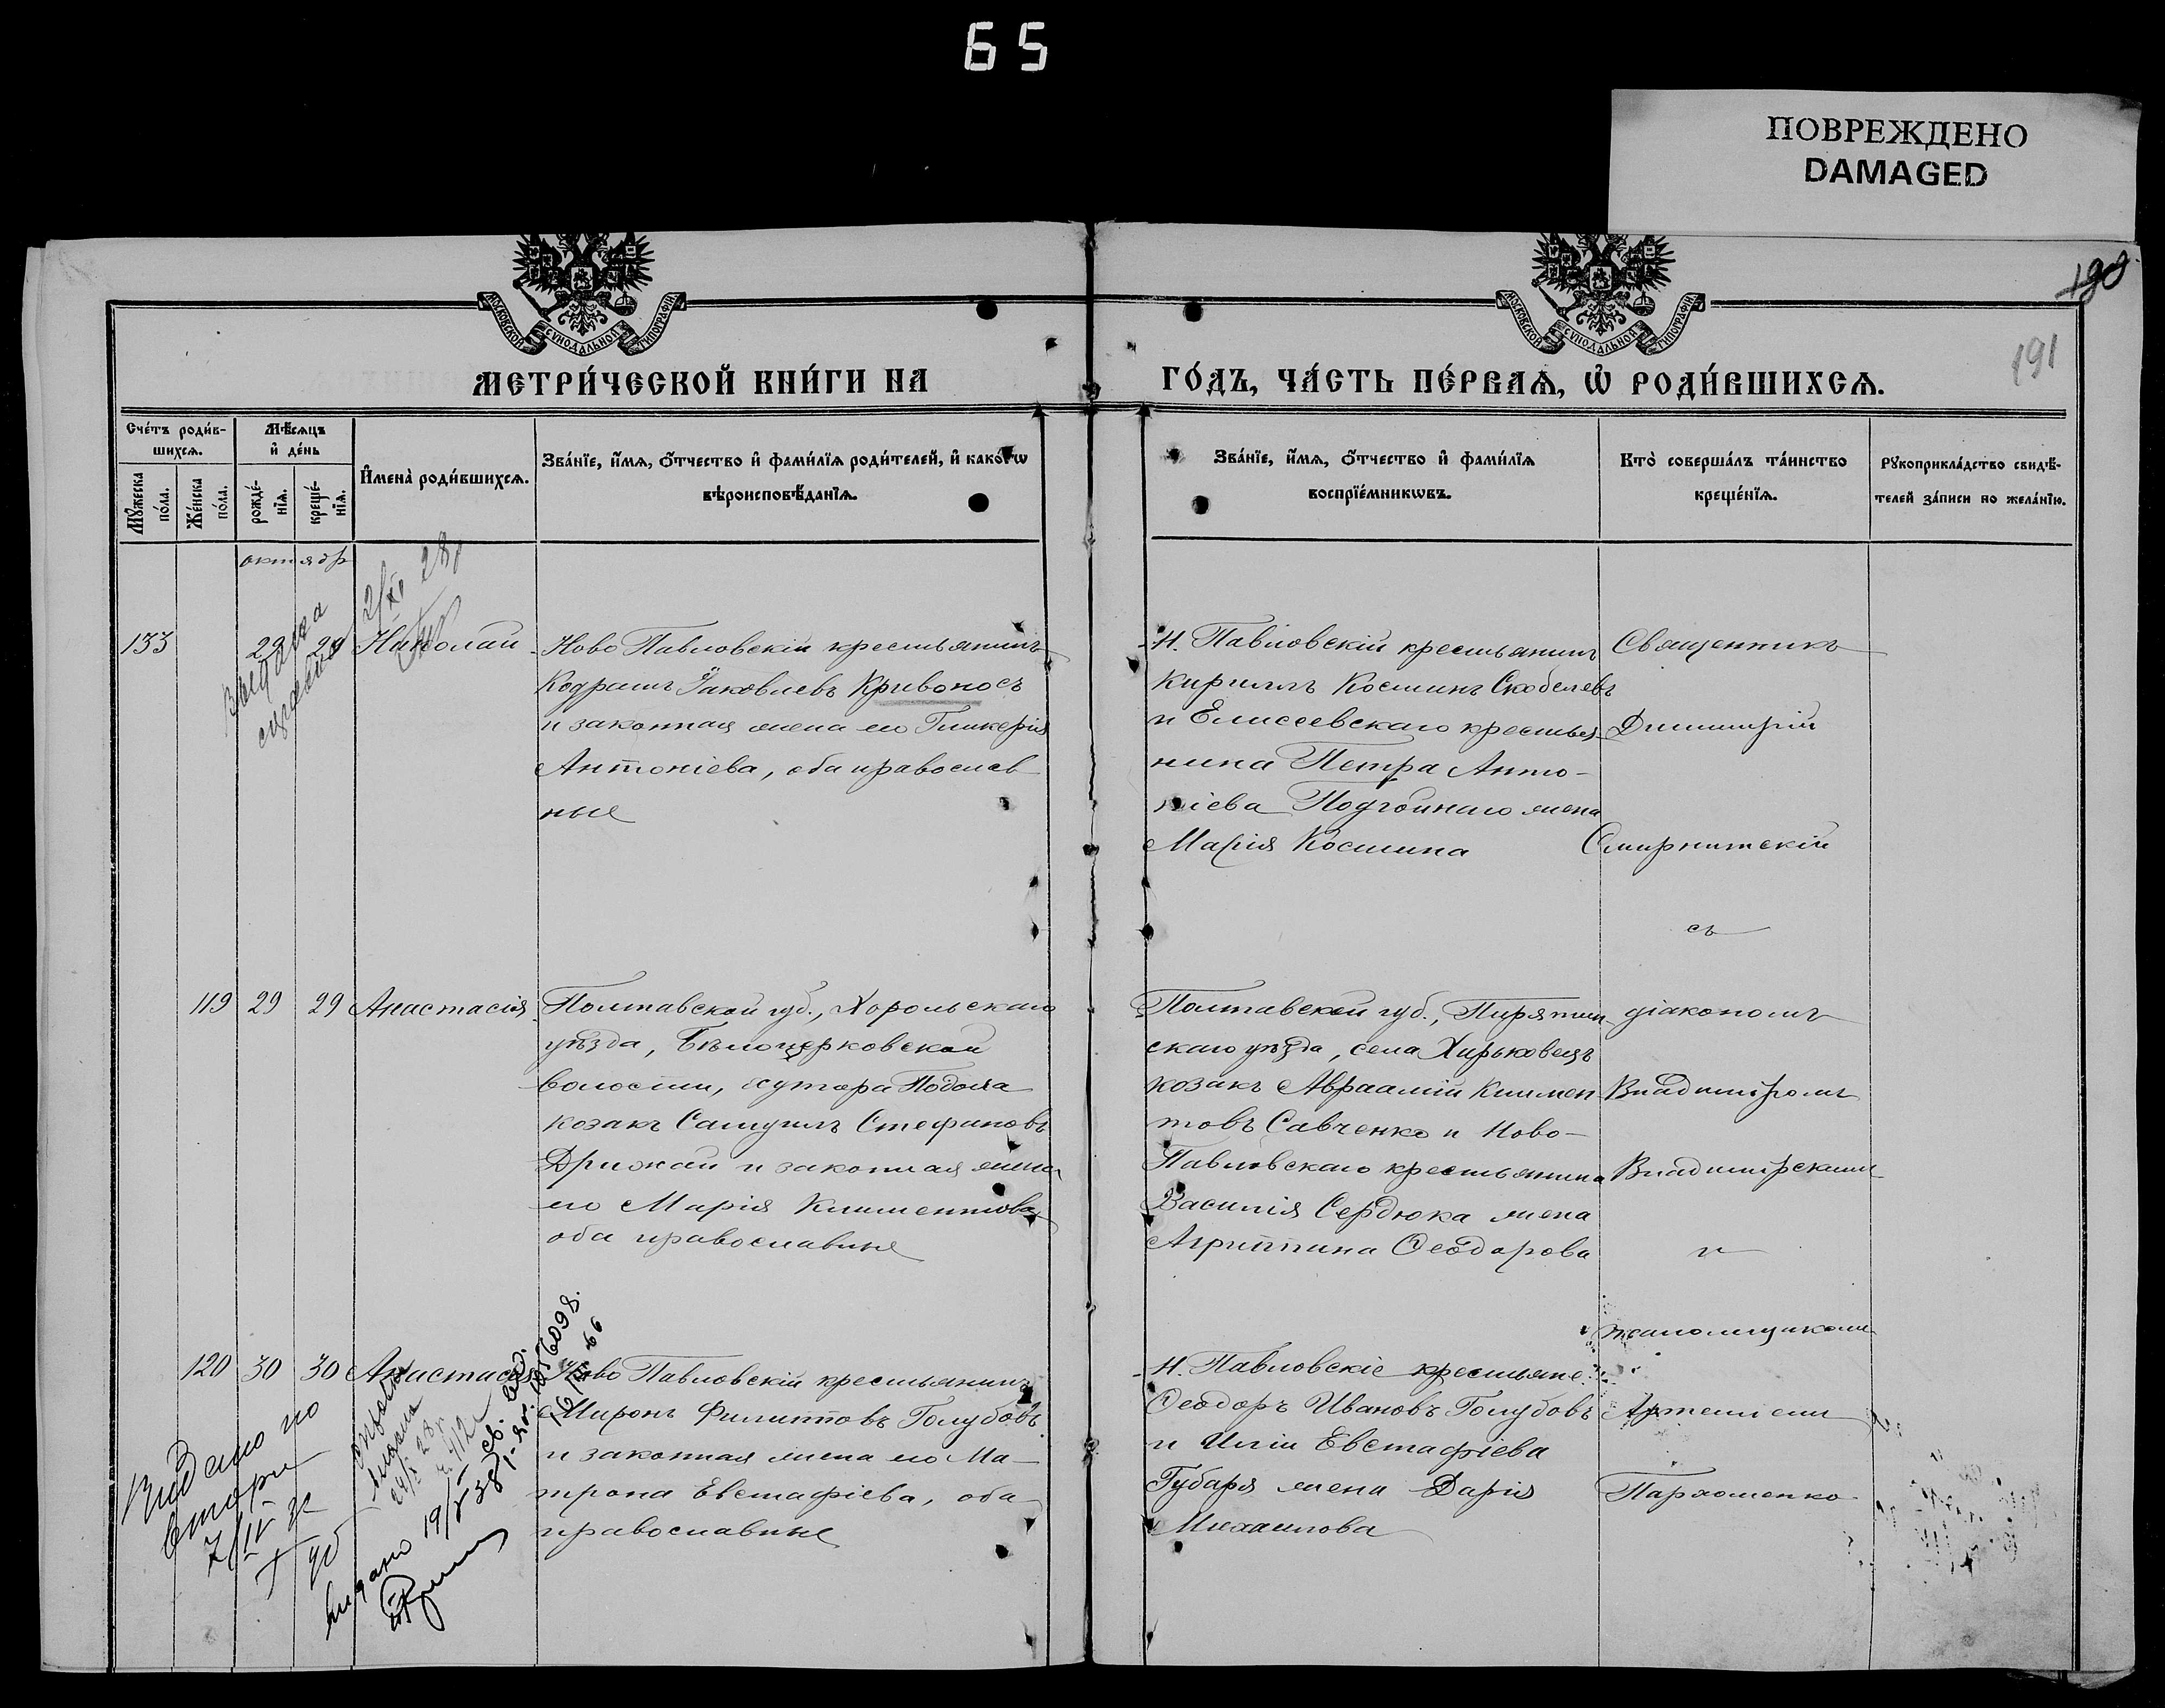 65
ПОВРЕЖДЕНО
DAMAGED
190
191
МОСКОВСКОЙ СѴНОДАЛЬНОЙ ТИПОГРАФІИ
МОСКОВСКОЙ СѴНОДАЛЬНОЙ ТИПОГРАФІИ
МЕТРИ́ЧЕСКОЙ КНИ́ГИ НА
ГО́ДЪ, ЧА́СТЬ ПЕ́РВАѦ, Ѽ РОДИ́ВШИХСѦ.
Сче́тъ роди́в-
шихсѧ.
Мꙋжеска
по́ла.
Же́нска
по́ла.
Мѣ́сѧцъ
и҆ де́нь
рожде́-
нїѧ.
креще́-
нїѧ.
И҆мена̀ роди́вшихсѧ.
Зва́нїе, и҆́мѧ, ѻ҆́тчество и҆ фами́лїѧ роди́телей, и҆ како́гѡ
вѣроисповѣ́данїѧ.
Зва́нїе, и҆́мѧ, ѻ҆́тчество и҆ фами́лїѧ
воспрїе́мникѡвъ.
Кто̀ соверша́лъ та́инство
креще́нїѧ.
Рꙋкоприкла́дство свидѣ́-
телей за́писи по жела́нїю.
октябр
133 29 29 Николай
Ново Павловскій крестьянинъ
Кодратъ Іаковлевъ Кривоносъ
и законная жена его Гликерія
Антоніева, оба православ
ные
Н. Павловскій крестьянинъ
Кириллъ Косминъ Скобелевъ
и Елисеевскаго крестья-
нина Петра Анто-
ніева Подгойнаго жена
Марія Космина
Священникъ
Димитрій
Смирнитскій
съ
Выдана
справка
119 29 29 Анастасія
Полтавской губ., Хорольскаго
уѣзда, Бѣлоцерковской
волости, хутора Подола
козакъ Самуилъ Стефановъ
Дрижай и законная жена
его Марія Климентова
оба православные
Полтавской губ., Пирятин-
скаго уѣзда, села Хирьковецъ
козакъ Авраамій Климен-
товъ Савченко и Ново-
Павловскаго крестьянина
Василія Сердюка жена
Агриппина Ѳеодорова
діакономъ
Владиміромъ
Владимірскимъ
и
псаломщикомъ
120 30 30 Анастасія
Ново Павловскій крестьянинъ
Миронъ Филипповъ Голубовъ
и законная жена его Ма-
трона Евстафіева, оба
православные
Н. Павловскіе крестьяне
Ѳеодоръ Ивановъ Голубовъ
и Иліи Евстафіева
Губаря жена Дарія
Михаилова
Артеміемъ
Пархоменко
Видано по
втори
7/IV 32
выдано 19/I 38